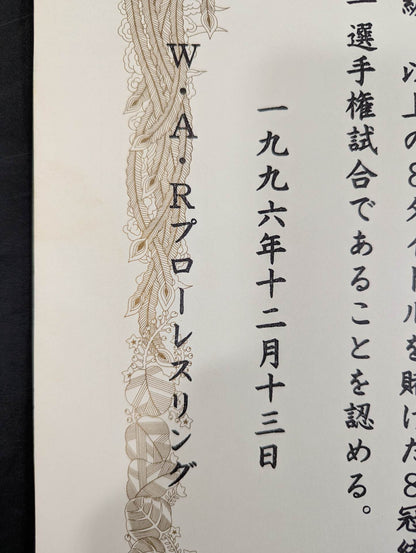 以上の8タイトルを賭けた8冠統
一選手権試合であることを認める。
一九九六年十二月十三日
W・A・Rプローレスリング